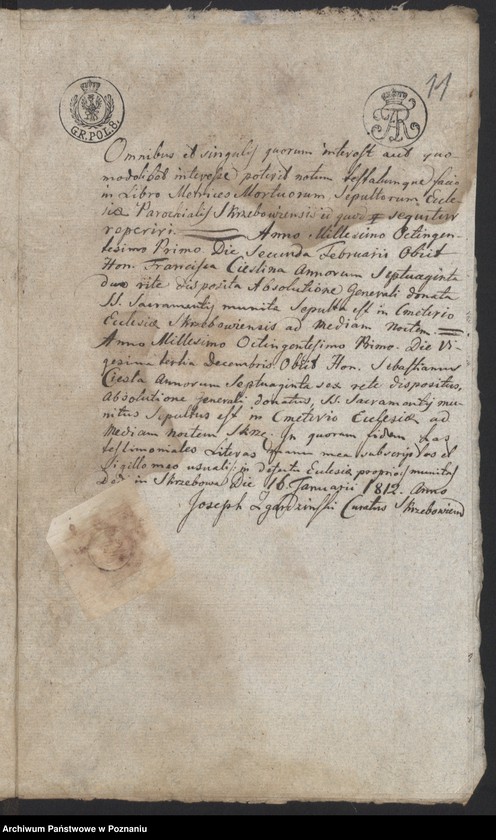 11
GR.POL.8.
FAR
Omnibus et singulis quorum interest aut quo-
modolibet interesse poterit notum testatumque facio
in Libro Metrices Mortuorum Sepultorum Eccle-
siæ Parochialis Skrzebowiensis id quod sequitur
reperiri. Anno Millesimo Octingen-
tesimo Primo Die Secunda Februarii Obiit
Hon. Francisca Cieslina Annorum Septuaginta
duo rite disposita Absolutione Generali donata
SS. Sacramentis munita Sepulta est in Cmeterio
Ecclesiæ Skrzebowensis ad Mediam Noctem.
Anno Millesimo Octingentesimo Primo. Die Vi-
gesima tertia Decembris Obiit Hon. Sebastianus
Ciesla Annorum Septuaginta sex rite dispositus,
Absolutione generali donatus, SS. Sacramentis mu-
nitus Sepultus est in Cmeterio Ecclesiæ ad
Mediam noctem Skrze. In quorum fidem has
testimoniales Literas manu mea subscriptas et
Sigillo meo usuali, in defectu Ecclesiæ proprii munitas
Dd. in Skrzebowa Die 16 Januarii 1812. Anno
Joseph Zgardzinski Curatus Skrzebowien
Archiwum Państwowe w Poznaniu